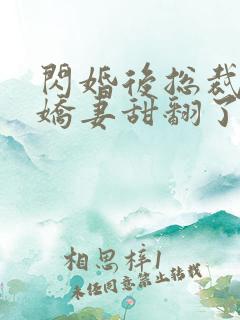 閃婚後總裁
嬌妻甜翻了
相思梓1
未經同意禁止轉載